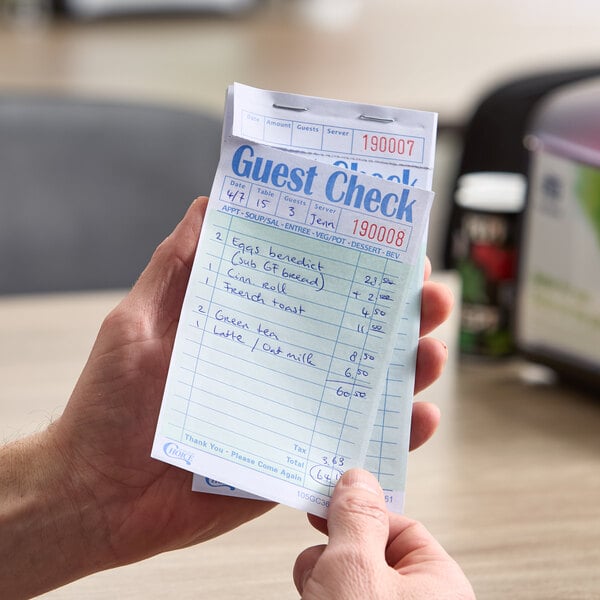 Date Amount Guests Server 190007
Check
Guest Check
Date Table Guests Server
4/7 15 3 Jenn 190008
APPT - SOUP/SAL - ENTREE - VEG/POT - DESSERT - BEV
2 Eggs benedict
(sub GF bread) + 2.00
1 Cinn roll 4.50
1 French toast 11.50
2 Green tea 8.50
1 Latte / Oat milk 6.50
60.50
Tax 3.63
Thank You - Please Come Again Total
CHOICE